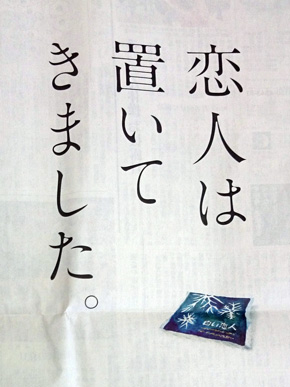 恋人は
置いて
きました。
白い恋人